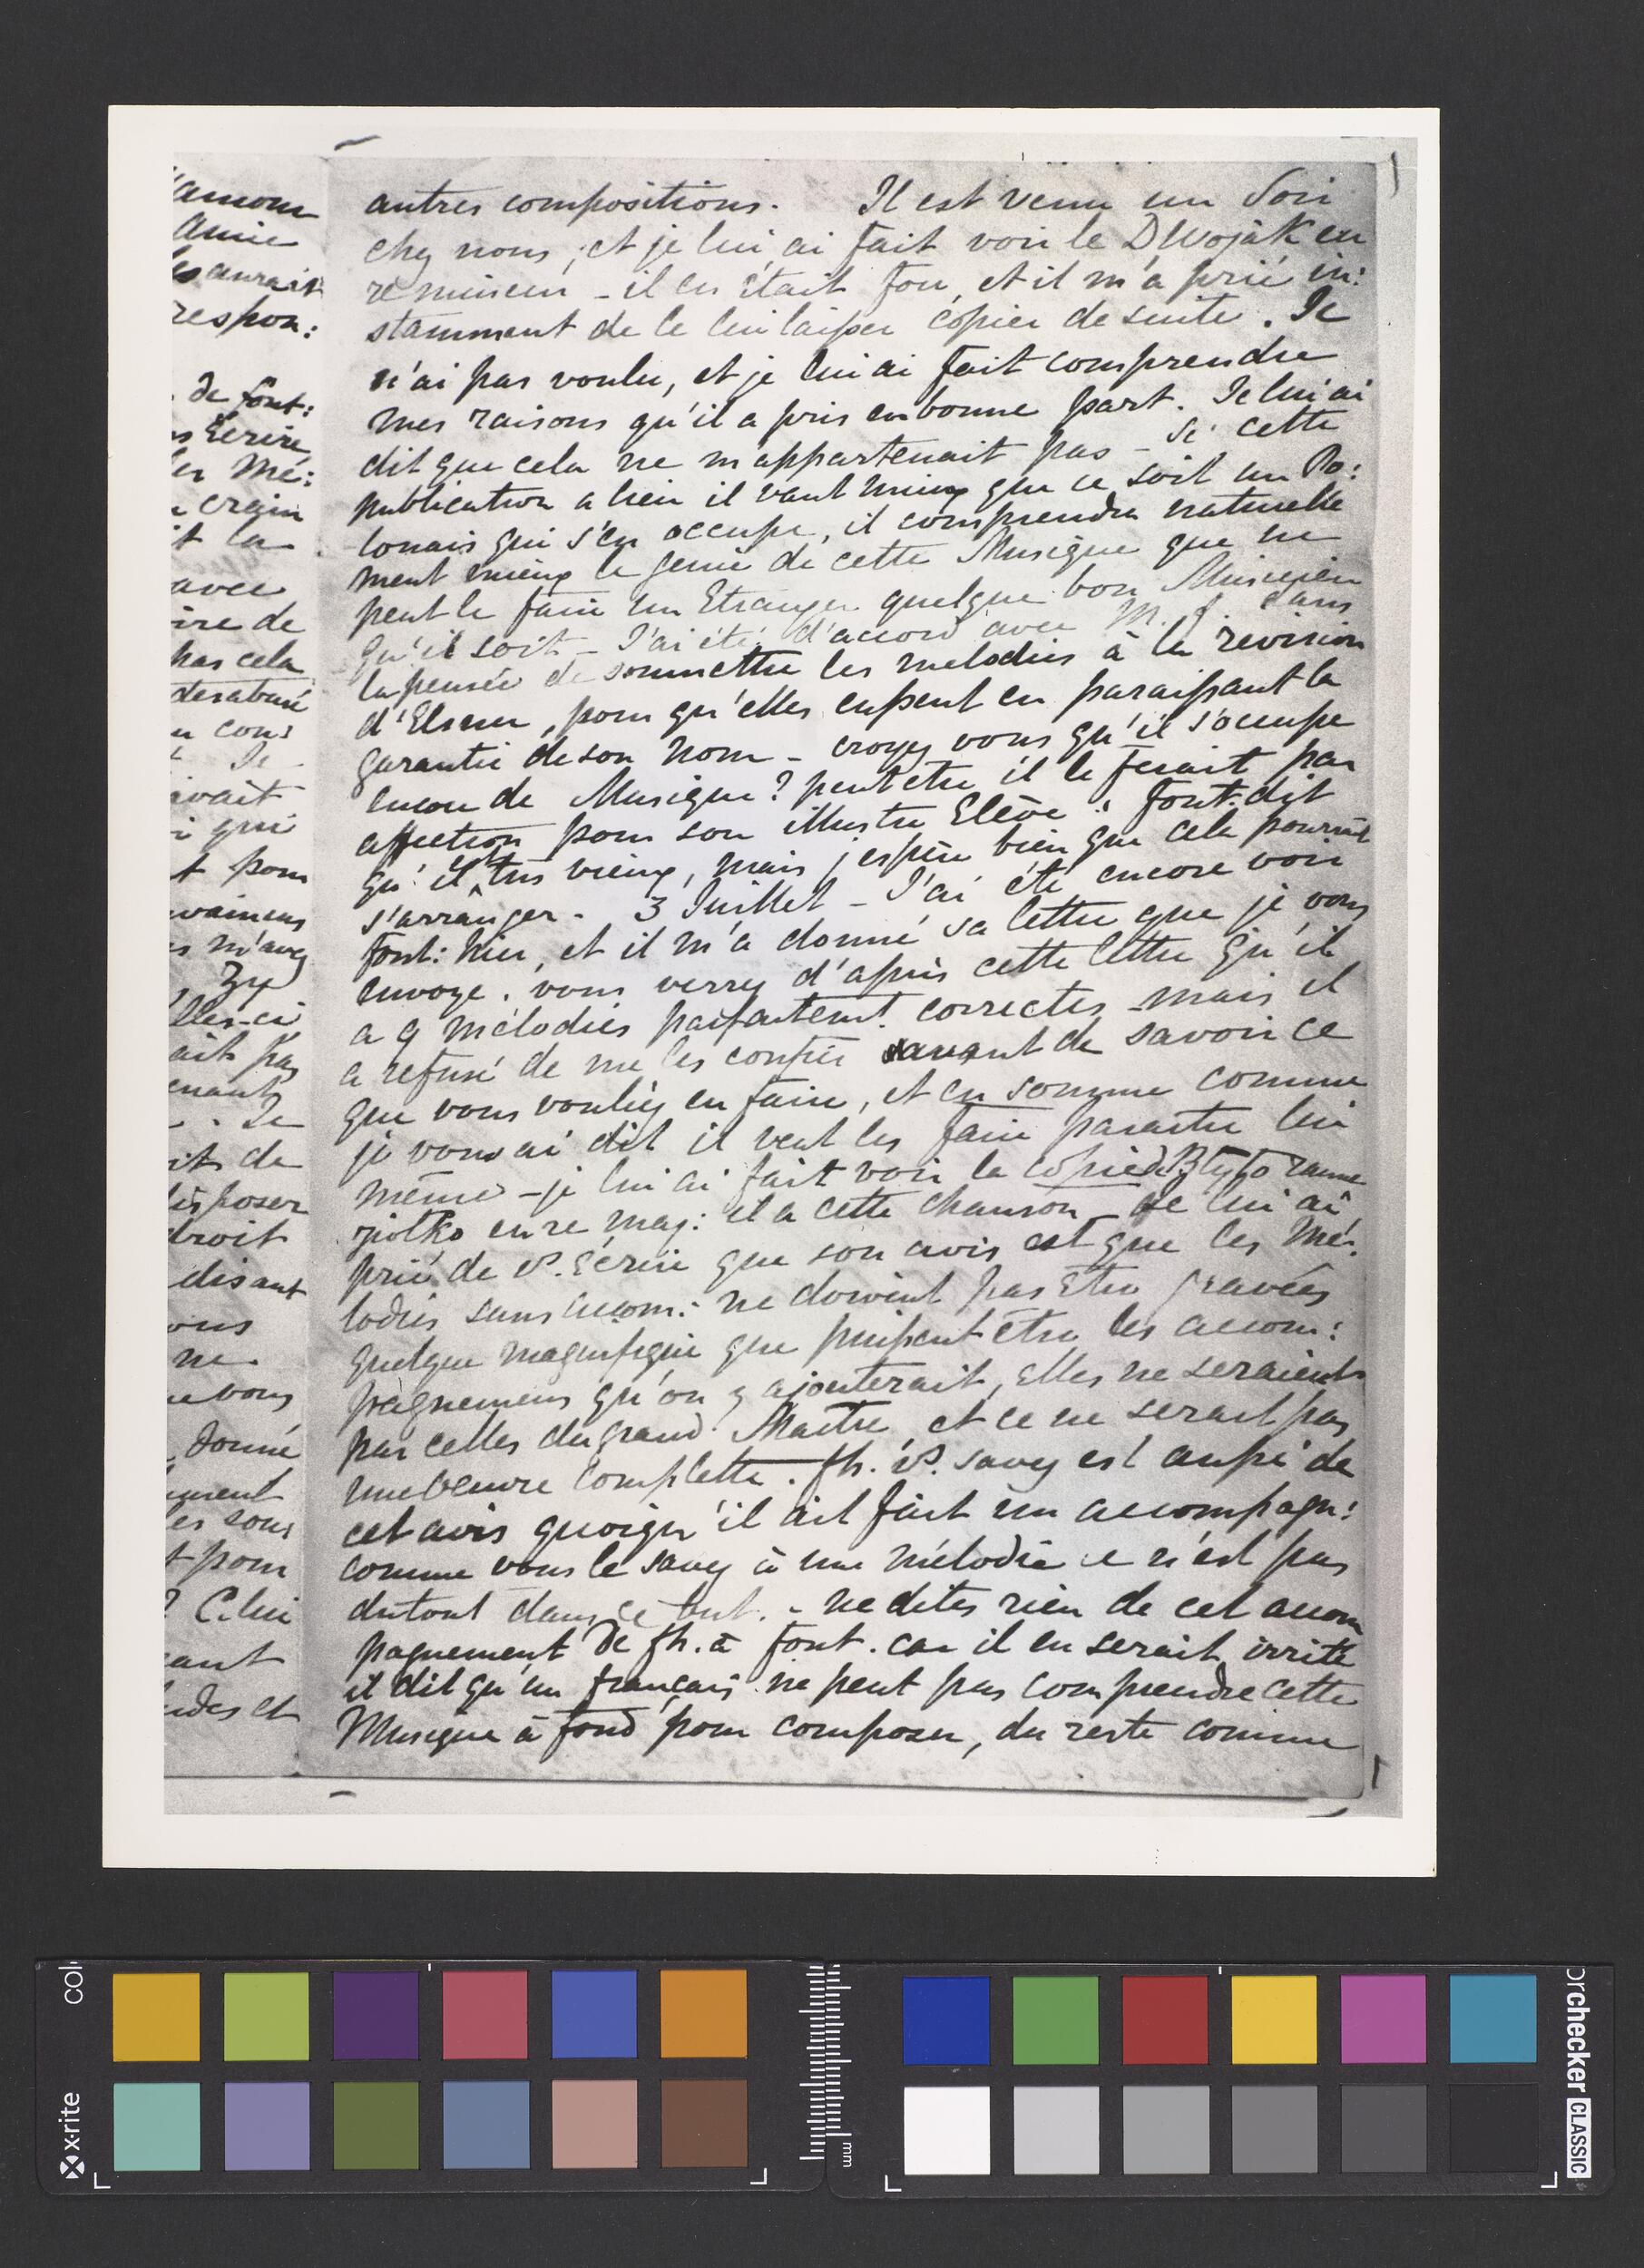 amour
amie
aurait
respon:
de font:
Ecrire
les Mé:
crain
it la
avec
ire de
pas cela
desabusé
cons
Je
avait
i qui
t pour
vaincus
m'avez
Zy
lles-ci
ait pas
enant
. Je
its de
disposer
droit
disant
ous
ne
vous
donné
ment
les sous
t pour
? C. lui
ant
udes et
autres compositions. Il est venu un Soir
chez nous, et je lui ai fait voir le DWojak en
re mineur - il en était fou, et il m'a prié in:
stamment de le lui laisser copier de suite. Je
n'ai pas voulu, et je lui ai fait comprendre
mes raisons qu'il a pris en bonne part. Je lui ai
dit que cela ne m'appartenait pas - Si cette
publication a lieu il vaut mieux que ce soit un Po:
lonais qui s'en occupe, il comprendra naturelle
ment mieux le genie de cette Musique que ne
peut le faire un Etranger quelque bon Musicien
qu'il soit - J'ai été d'accord avec M. J. dans
la pensée de soumettre les melodies à la revision
d'Elsner, pour qu'elles eussent en paraissant la
garantie de son nom - croyez vous qu'il s'occupe
encore de Musique? peut etre il le ferait par
affection pour son illustre Elève: font. dit
qu'il très vieux, mais j'espère bien que cela pourrait
s'arranger. 3 Juillet - J'ai été encore voir
font: hier, et il m'a donné sa lettre que je vous
envoye. vous verrez d'après cette lettre qu'il
a 9 mélodies parfaitement correctes - mais il
a refusé de me les confier avant de savoir ce
que vous vouliez en faire, et en somme comme
je vous ai dit il veut les faire paraitre lui
même - je lui ai fait voir la copie d Bylyto ranne
ziolko en re maj: il a cette chanson - Je lui ai
prié de v. Ecrire que son avis est que les Mé:
lodies sans accom: ne doivent pas Etre gravées
quelque magnifique que puissent être les accom:
pagnemens qu'on y ajouterait, elles ne seraient
pas celles du grand Maitre, et ce ne serait pas
une Oeuvre Complette. fh. v. savez est aussi de
cet avis quoiqu'il ait fait un accompagn:
comme vous le savez à une mélodie ce n'est pas
du tout dans ce but. - ne dites rien de cet accom
pagnement de fh. à font. car il en serait irrité
il dit qu'un français ne peut pas comprendre cette
Musique à fond pour composer, du reste comme
x-rite
col
mm
orchecker CLASSIC